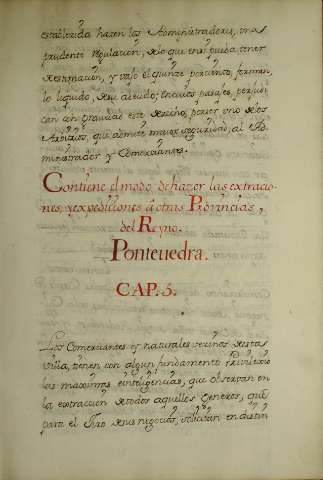 establecida hazen los Administradores, una
prudente regulacion, de lo que enos pueda tener
de estimacion, y vajo el quinze por ciento, forman
lo liquido, de su adeudo; en cuios parajes, perjudi
can con gravedad este derecho, por ser uno de los
Arbitrios, que admite maior seguridad, al Ad-
ministrador y Comerciantes.
Contiene el modo de hazer las extracio-
nes, y expediciones á otras Provincias,
del Reyno.
Pontevedra.
CAP. 5.
Los Comerciantes y naturales vezinos de esta
villa, tienen con algun fundamento
las maximas e inteligencias, que observan en
la extraccion de todos aquellos generos, que
para el Jiro de sus negocios, solicitan en distin